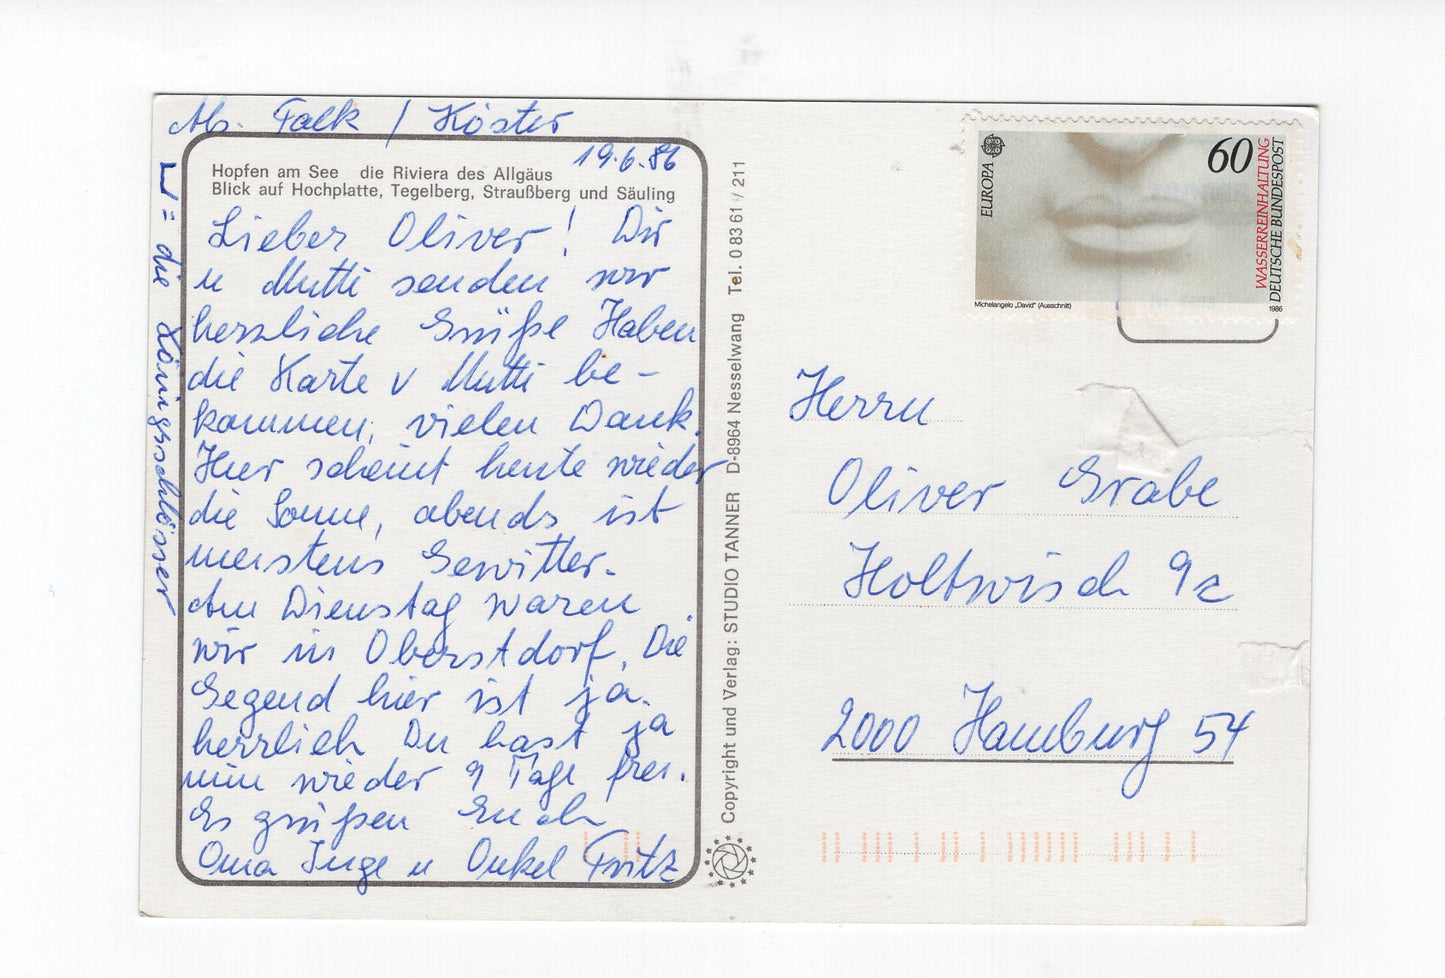 Ab. Falk / Köster
19.6.86
Hopfen am See die Riviera des Allgäus
Blick auf Hochplatte, Tegelberg, Straußberg und Säuling
Lieber Oliver! Dir
u Mutti senden wir
herzliche Grüße Haben
die Karte v Mutti be-
kommen, vielen Dank.
Hier scheint heute wieder
die Sonne, abends ist
meistens Gewitter.
Am Dienstag waren
wir in Oberstdorf. Die
Gegend hier ist ja
herrlich Du hast ja
nun wieder 9 Tage frei.
Es grüßen Euch
Oma Inge u Onkel Fritz
= die Königsschlösser
Copyright und Verlag: STUDIO TANNER D-8964 Nesselwang Tel. 0 83 61 / 211
EUROPA
60
WASSERREINHALTUNG
DEUTSCHE BUNDESPOST
Michelangelo „David" (Ausschnitt)
1986
Herrn
Oliver Grabe
Holtwisch 9c
2000 Hamburg 54